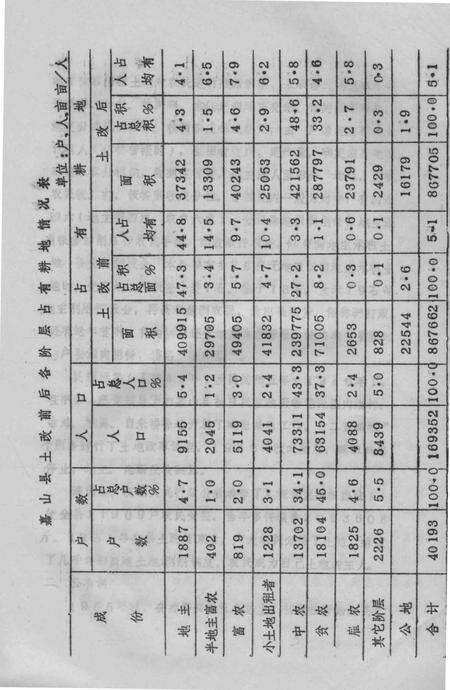 嘉山县土改前后各阶层占有耕地情况表
单位:户、人、亩、亩/人
成份 户数 人口 占有耕地
土改前 土改后
户数 占总户数% 人口 占总人口% 面积 占总面积% 人占均有 面积 占总积% 人占均有
地主 1887 4.7 9155 5.4 409915 47.3 44.8 37342 4.3 4.1
半地主富农 402 1.0 2045 1.2 29705 3.4 14.5 13309 1.5 6.5
富农 819 2.0 5119 3.0 49405 5.7 9.7 40243 4.6 7.9
小土地出租者 1228 3.1 4041 2.4 41832 4.7 10.4 25053 2.9 6.2
中农 13702 34.1 73311 43.3 239775 27.2 3.3 421562 48.6 5.8
贫农 18104 45.0 63154 37.3 71005 8.2 1.1 287797 33.2 4.6
雇农 1825 4.6 4088 2.4 2653 0.3 0.6 23791 2.7 5.8
其它阶层 2226 5.5 8439 5.0 828 0.1 0.1 2429 0.3 0.3
公地 22544 2.6 16179 1.9
合计 40193 100.0 169352 100.0 867662 100.0 5.1 867705 100.0 5.1